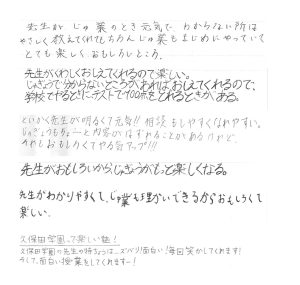 先生がじゅ業のとき元気で、わからない所は
やさしく教えてくれてもちろんじゅ業もまじめにやっていて
とても楽しくおもしろいところ。
先生がくわしくおしえてくれるので楽しい。
じゅぎょうで分からないどころがあればおしえてくれるので、
学校でやるときにテストで100点をとれるときが、ある。
とにかく先生が明るくて元気!!相談もしやすくなれやすい。
じゅぎょうもちょーっと内容がはずれることがあるけれど、
それもおもしろくてやる気アップ!!!
先生がおもしろいから、じゅぎょうがもっと楽しくなる。
先生がわかりやすくて、じゅ業も理かいできるからおもしろくて
楽しい。
久保田学園って楽しい塾!
久保田学園の先生の特ちょうは…ズバリ!面白い!毎回笑かしてくれます!
そして、面白い授業をしてくれますー!